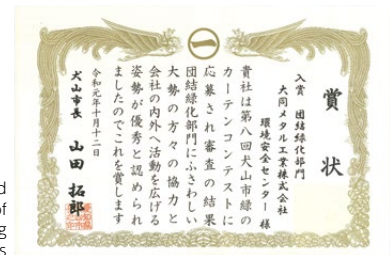 賞状
入賞 団結緑化部門
大同メタル工業株式会社
環境安全センター 様
貴社は第八回犬山市緑の
カーテンコンテストに
応募され審査の結果
団結緑化部門にふさわしい
大勢の方々の協力と
会社の内外へ活動を広げる
姿勢が優秀と認められ
ましたのでこれを賞します
令和元年十月十二日
犬山市長 山田 拓郎
d
of
g
s